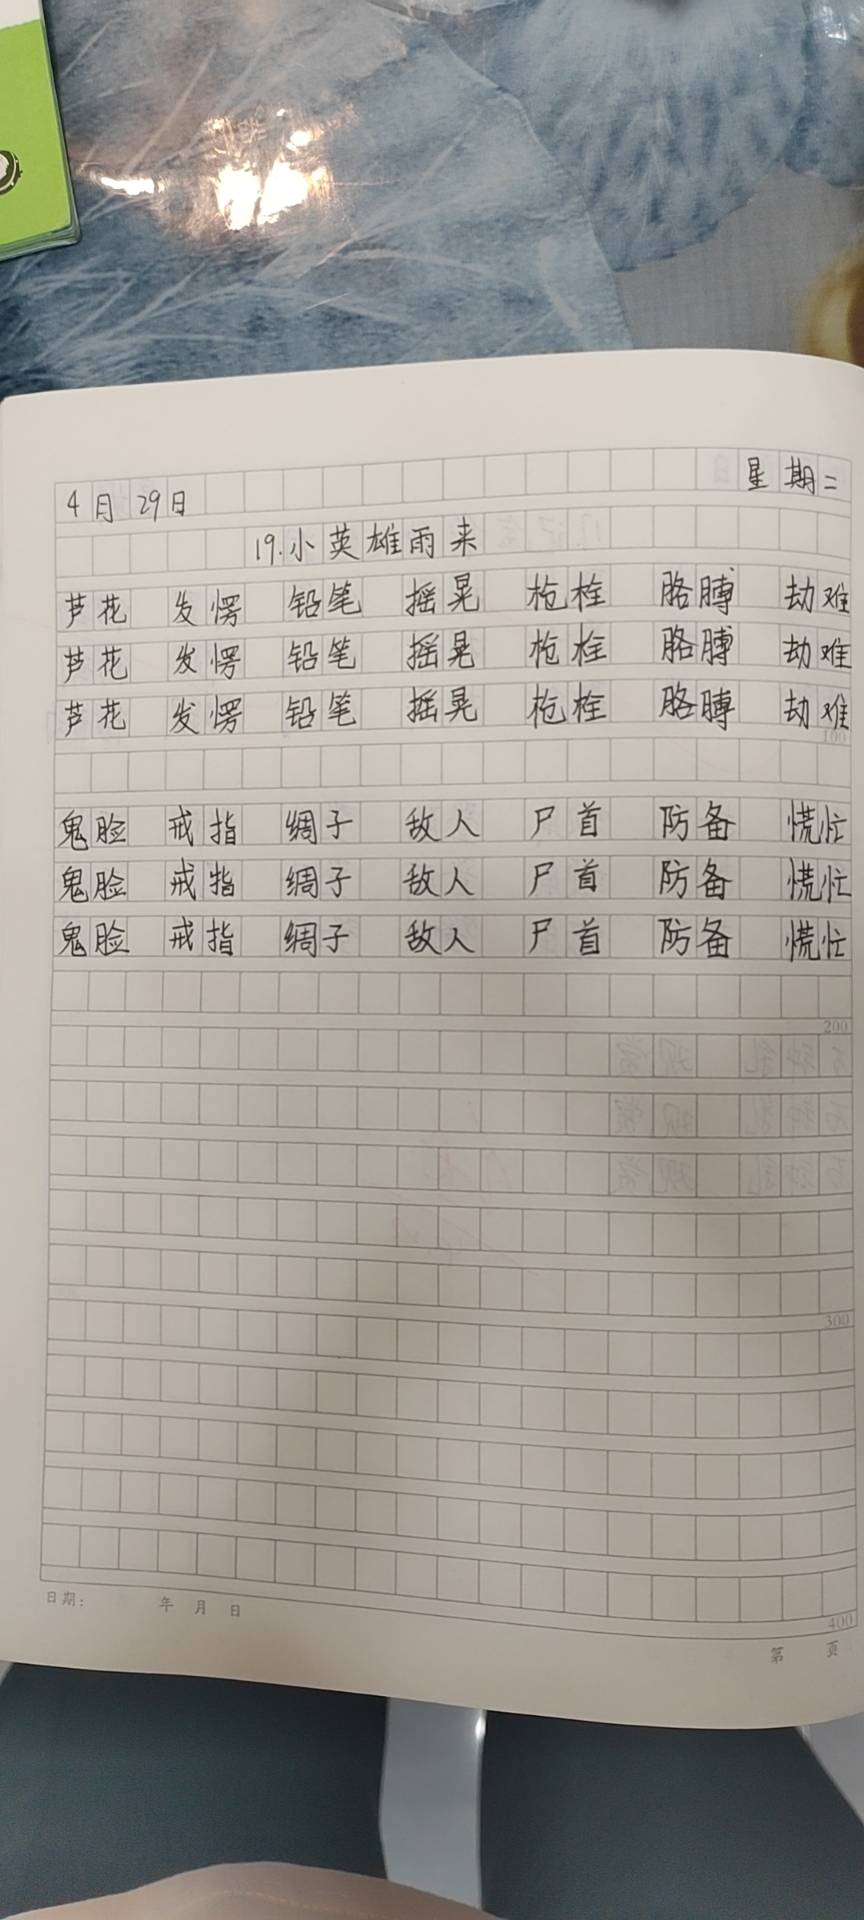 4月29日 星期二
19.小英雄雨来
芦花 发愣 铅笔 摇晃 枪栓 胳膊 劫难
芦花 发愣 铅笔 摇晃 枪栓 胳膊 劫难
芦花 发愣 铅笔 摇晃 枪栓 胳膊 劫难
100
鬼脸 戒指 绸子 敌人 尸首 防备 慌忙
鬼脸 戒指 绸子 敌人 尸首 防备 慌忙
鬼脸 戒指 绸子 敌人 尸首 防备 慌忙
200
300
400
日期: 年 月 日
第 页